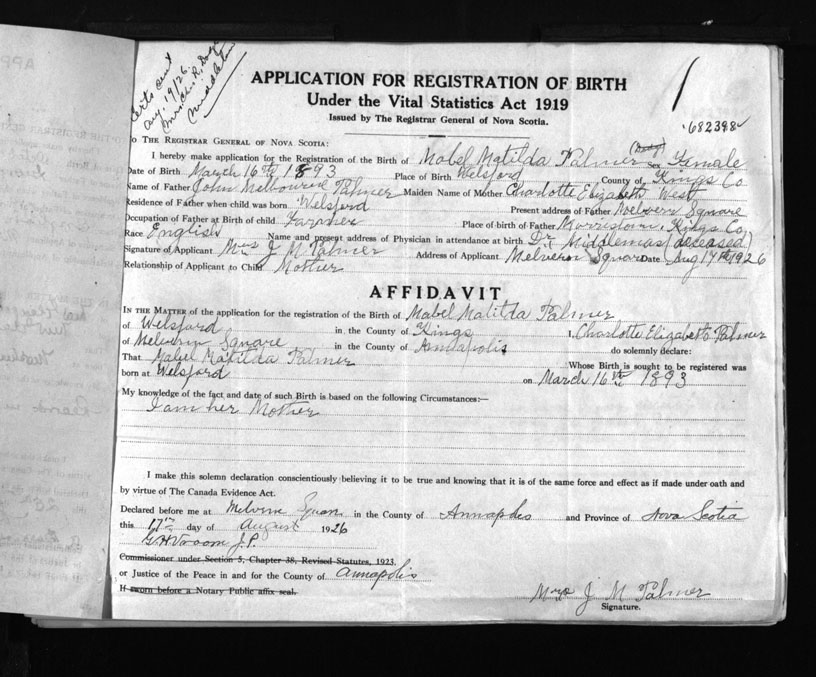 Certs sent
Aug. 19/26.
Middleton
APPLICATION FOR REGISTRATION OF BIRTH
Under the Vital Statistics Act 1919
Issued by The Registrar General of Nova Scotia.
682398
To The Registrar General of Nova Scotia:
I hereby make application for the Registration of the Birth of Mabel Matilda Palmer Sex Female
Date of Birth March 16th 1893 Place of Birth Welsford County of Kings Co
Name of Father John Melbourne Palmer Maiden Name of Mother Charlotte Elizabeth West
Residence of Father when child was born Welsford Present address of Father Melvern Square
Occupation of Father at Birth of child Farmer Place of birth of Father Morristown, Kings Co,
Race English Name and present address of Physician in attendance at birth Dr Middlemas (deceased)
Signature of Applicant Mrs J M Palmer Address of Applicant Melvern Square Date Aug 17th 1926
Relationship of Applicant to Child Mother
AFFIDAVIT
In the Matter of the application for the registration of the Birth of Mabel Matilda Palmer
of Welsford in the County of Kings I, Charlotte Elizabeth Palmer
of Melvern Square in the County of Annapolis do solemnly declare:
That Mabel Matilda Palmer Whose Birth is sought to be registered was
born at Welsford on March 16th 1893
My knowledge of the fact and date of such Birth is based on the following Circumstances:—
I am her Mother
I make this solemn declaration conscientiously believing it to be true and knowing that it is of the same force and effect as if made under oath and
by virtue of The Canada Evidence Act.
Declared before me at Melvern Square in the County of Annapolis and Province of Nova Scotia
this 17th day of August 1926
G. H. Vroom J.P.
Commissioner under Section 5, Chapter 38, Revised Statutes, 1923.
or Justice of the Peace in and for the County of Annapolis
If sworn before a Notary Public affix seal.
Mrs J M Palmer
Signature.